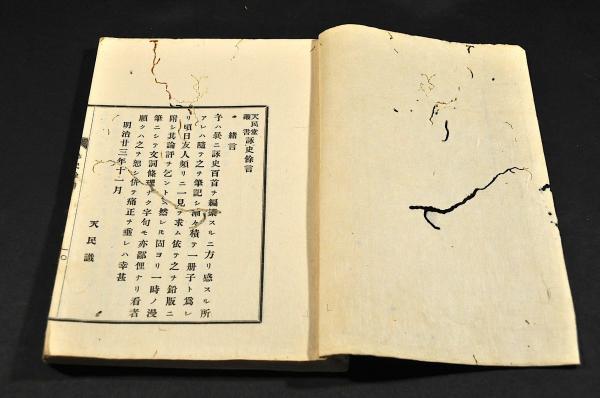 天民堂叢書 詠史餘言
緒言
予ハ曩ニ詠史百首ヲ編纂スルニ方リ感スル所
アレハ隨テ之ヲ筆記シ積テ一册子ト爲レ
リ頃日友人頻リニ一見ヲ求ム依テ之ヲ鉛版ニ
附シ其論評ヲ乞ントス然レ𪜈固ヨリ一時ノ漫
筆ニシテ文詞條理ナク字句モ亦鄙俚ナリ看者
願クハ之ヲ恕シ併テ痛正ヲ垂レハ幸甚
明治廿三年十一月
天民識